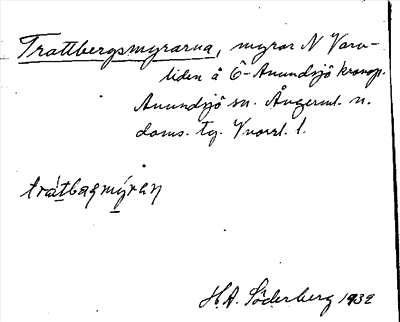 Trattbergsmyrarna, myrar N Varv-
liden å Ö-Anundsjö kronop.
Anundsjö sn. Ångerml. n.
doms. tg. Vnorrl. l.
tratbagmýran
H.A. Söderberg 1932